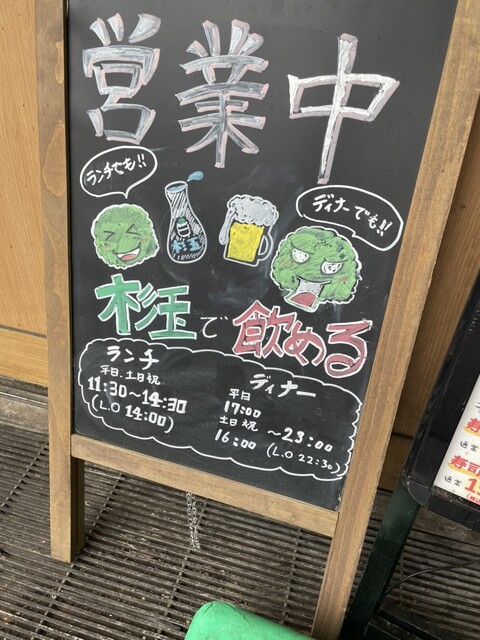 営業中
ランチでも!!
ディナーでも!!
杉玉
杉玉で飲める
ランチ
平日、土日祝
11:30〜14:30
(L.O 14:00)
ディナー
平日
17:00
土日祝
16:00
〜23:00
(L.O 22:30)
寿司